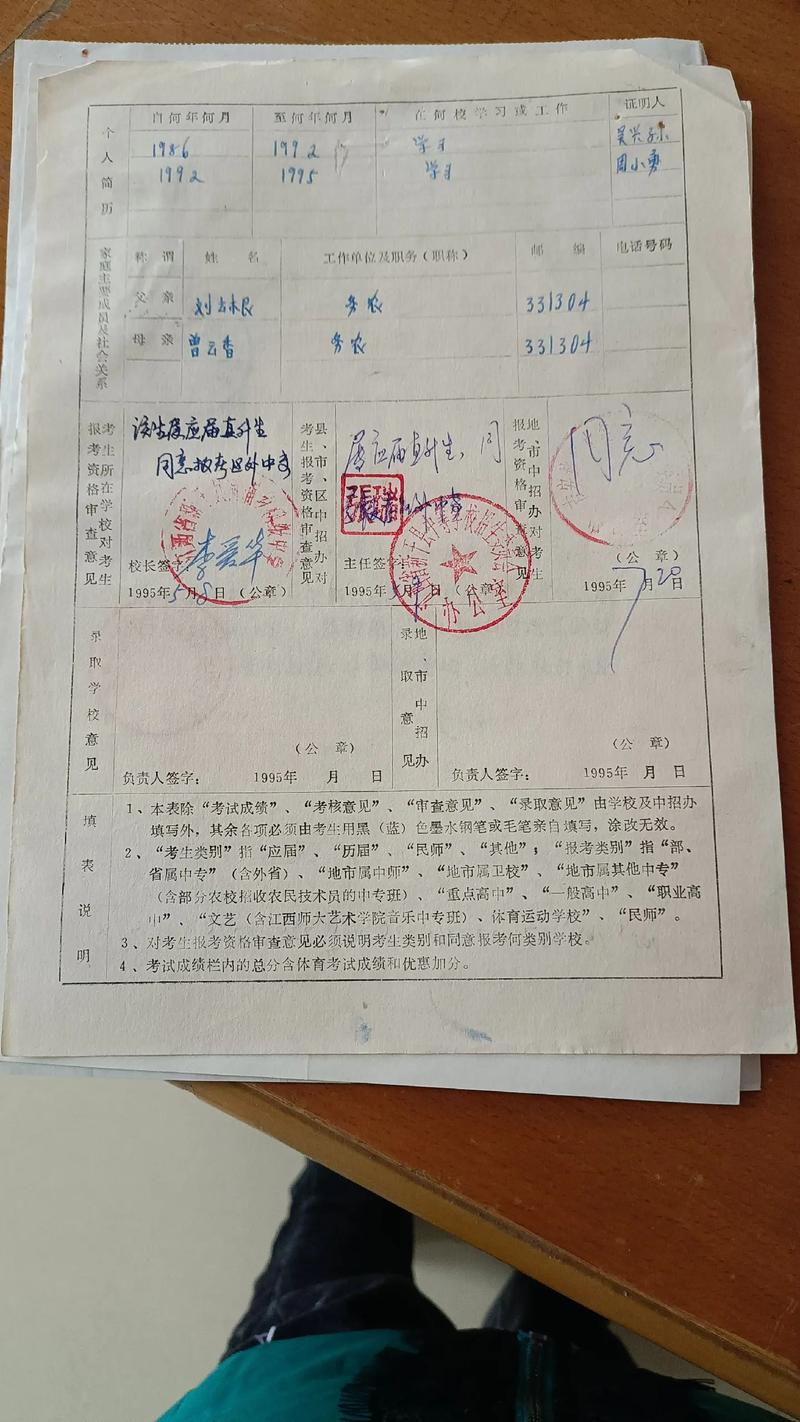 个人简历
自何年何月 至何年何月 在何校学习或工作 证明人
1986 1992 学习
1992 1995 学习 周小勇
家庭主要成员及社会关系
称谓 姓名 工作单位及职务（职称） 邮编 电话号码
父亲 务农 331304
母亲 曾云香 务农 331304
考生所在学校对考生报考资格审查意见
该生属应届直升生
同意报考
校长签字: 李爱华
1995年5月8日（公章）
县、市、区中招办对考生报考资格审查意见
属应届直升生、同
主任签字:
1995年 月 日（公章）
办公室
地、市中招办对考生报考资格审查意见
同意
（公章）
1995年7月20日
录取学校意见
（公章）
负责人签字: 1995年 月 日
地、市中招办录取意见
（公章）
负责人签字: 1995年 月 日
填表说明
1、本表除“考试成绩”、“考核意见”、“审查意见”、“录取意见”由学校及中招办
填写外，其余各项必须由考生用黑（蓝）色墨水钢笔或毛笔亲自填写，涂改无效。
2、“考生类别”指“应届”、“历届”、“民师”、“其他”；“报考类别”指“部、
省属中专”（含外省）、“地市属中师”、“地市属卫校”、“地市属其他中专”
（含部分农校招收农民技术员的中专班）、“重点高中”、“一般高中”、“职业高
中”、“文艺（含江西师大艺术学院音乐中专班）、体育运动学校”、“民师”。
3、对考生报考资格审查意见必须说明考生类别和同意报考何类别学校。
4、考试成绩栏内的总分含体育考试成绩和优惠加分。